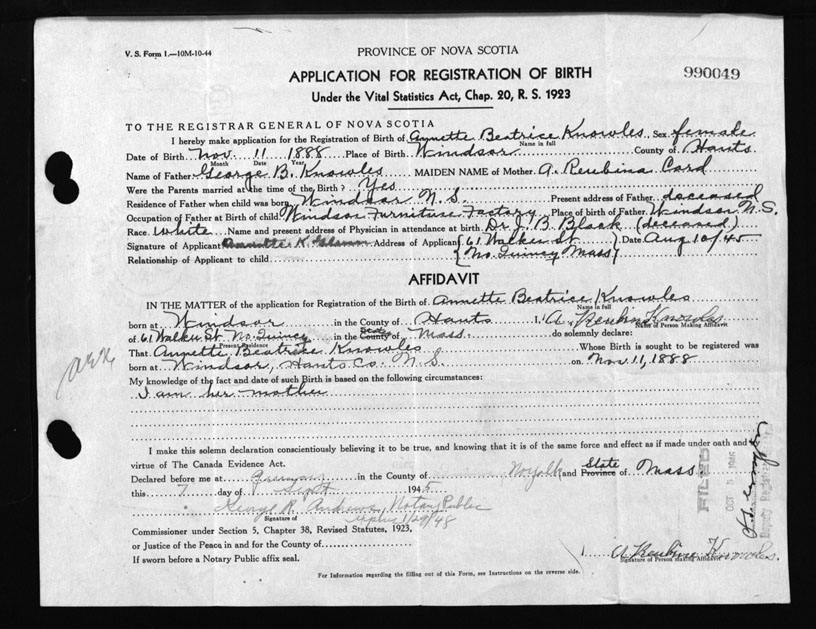 V. S. Form 1.—10M-10-44
PROVINCE OF NOVA SCOTIA
990049
APPLICATION FOR REGISTRATION OF BIRTH
Under the Vital Statistics Act, Chap. 20, R. S. 1923
TO THE REGISTRAR GENERAL OF NOVA SCOTIA
I hereby make application for the Registration of Birth of Annette Beatrice Knowles Sex female
Name in full
Date of Birth Nov. 11 1888 Place of Birth Windsor County of Hants
Month Date Year
Name of Father George B. Knowles MAIDEN NAME of Mother A. Reubina Card
Were the Parents married at the time of the Birth? Yes
Residence of Father when child was born Windsor N.S. Present address of Father deceased
Occupation of Father at Birth of child Windsor Furniture Factory Place of birth of Father Windsor N.S.
Race White Name and present address of Physician in attendance at birth Dr J. B. Black (deceased)
Signature of Applicant Annette K. Address of Applicant { 61 Walker St } Date Aug 10/45
Relationship of Applicant to child { No. Quincy Mass }
AFFIDAVIT
IN THE MATTER of the application for Registration of the Birth of Annette Beatrice Knowles
Name in full
born at Windsor in the County of Hants I, A. Reubin Knowles
Name of Person Making Affidavit
of 61 Walker St No. Quincy in the County of State Mass. do solemnly declare:
Present Residence
That Annette Beatrice Knowles Whose Birth is sought to be registered was
born at Windsor, Hants Co. N.S. on Nov. 11, 1888
My knowledge of the fact and date of such Birth is based on the following circumstances:
I am her mother
I make this solemn declaration conscientiously believing it to be true, and knowing that it is of the same force and effect as if made under oath and by
virtue of The Canada Evidence Act.
Declared before me at Quincy in the County of Norfolk and Province State of Mass
this 7 day of Sept 1945
George R. Andrews Notary Public
Signature of
expires 1/29/48
Commissioner under Section 5, Chapter 38, Revised Statutes, 1923,
or Justice of the Peace in and for the County of
If sworn before a Notary Public affix seal.
A Reubina Knowles.
Signature of Person Making Affidavit
For Information regarding the filling out of this Form, see Instructions on the reverse side.
FILED
OCT 5 1945
Deputy Registrar